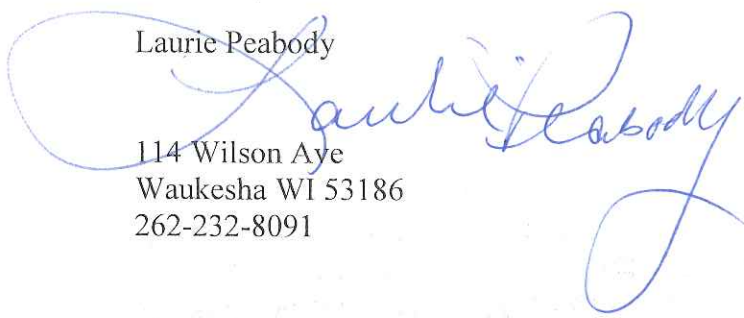 Laurie Peabody
Laurie Peabody
114 Wilson Ave
Waukesha WI 53186
262-232-8091